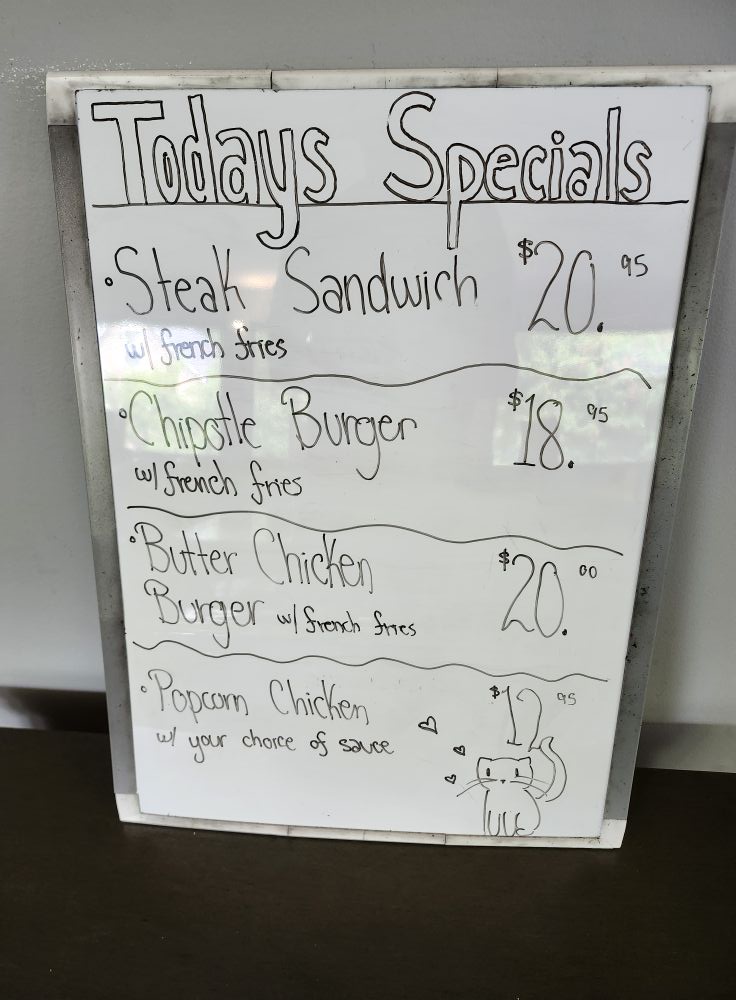 Todays Specials
• Steak Sandwich $20.95
w/ french fries
• Chipotle Burger $18.95
w/ french fries
• Butter Chicken $20.00
Burger w/ french fries
• Popcorn Chicken
w/ your choice of sauce